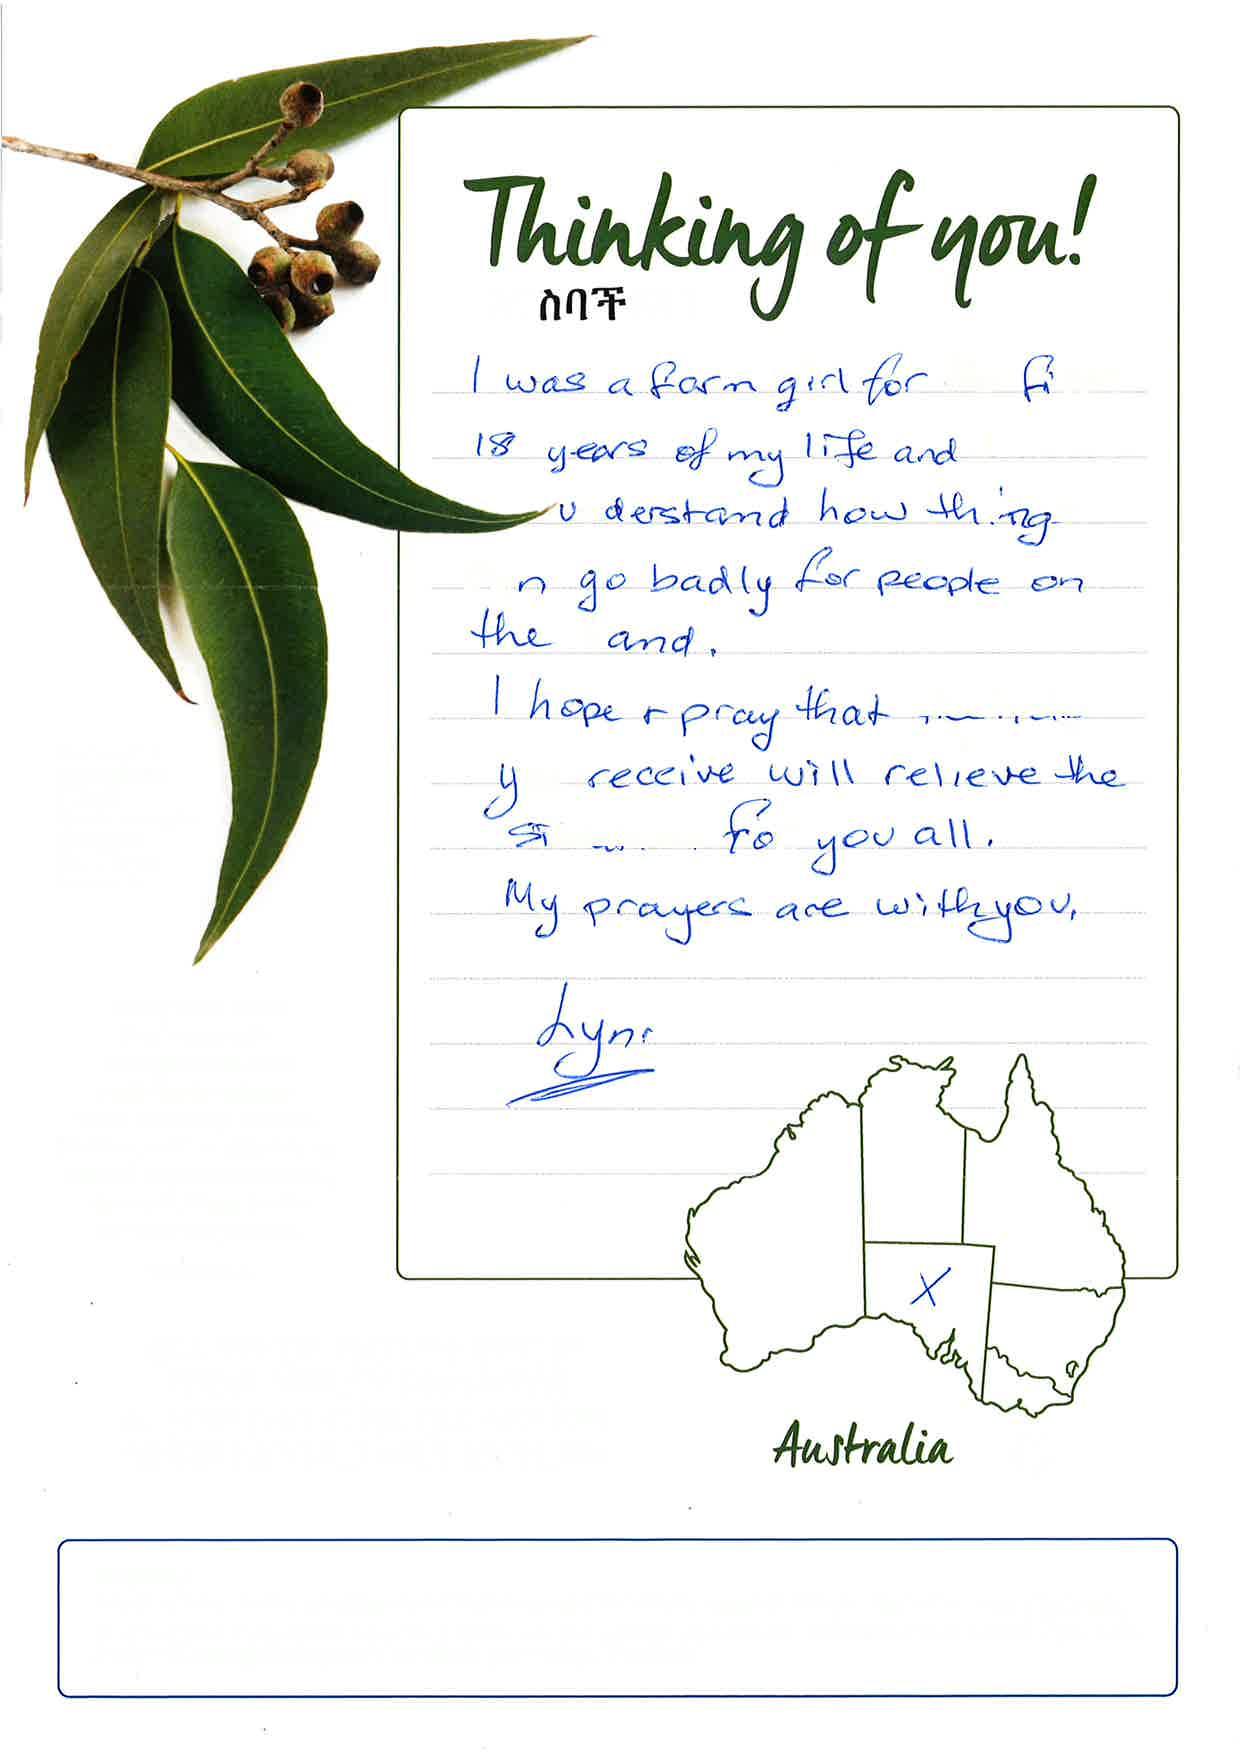 Thinking of you!
ስባች
I was a farm girl for
18 years of my life and
derstand how thing
go badly for people on
the and.
I hope + pray that
receive will relieve the
you all.
My prayers are with you,
Lyn
Australia
X